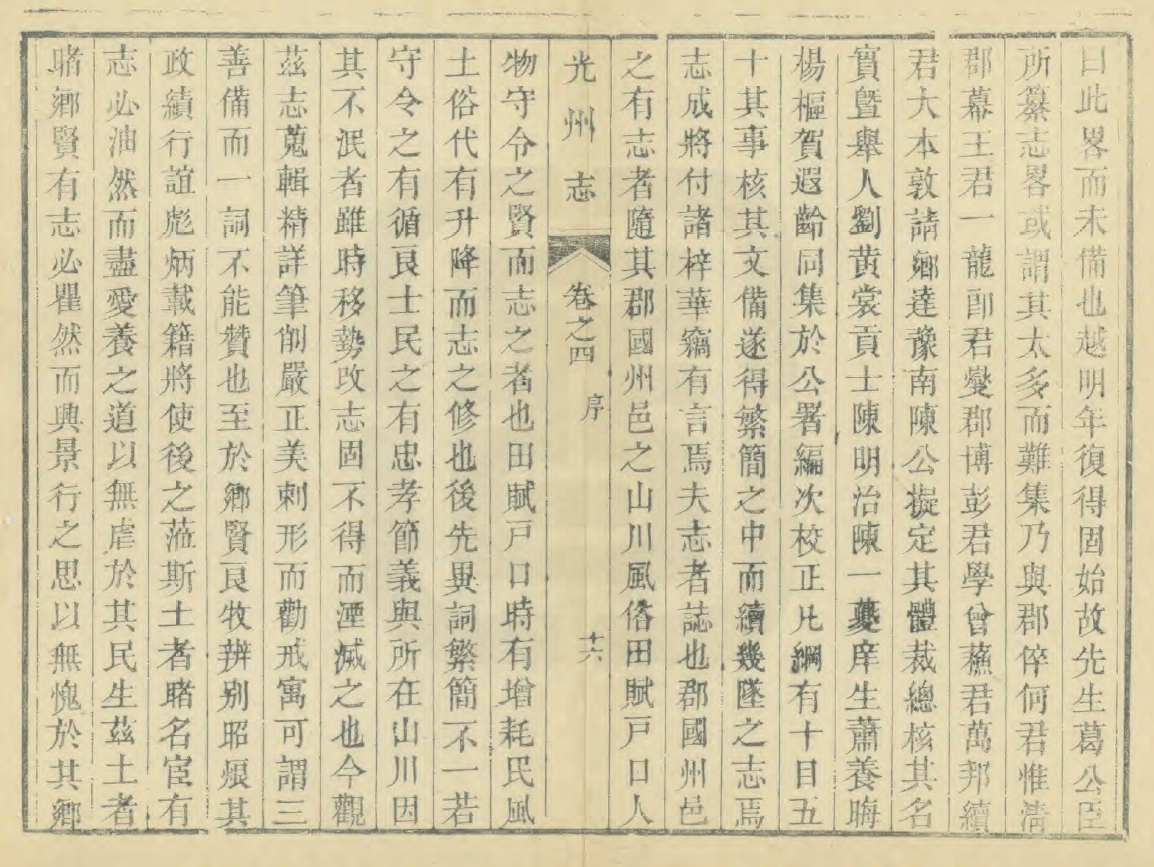 曰此畧而未備也越明年復得固始故先生葛公臣
所纂志畧或謂其太多而難集乃與郡倅何君惟清
郡幕王君一龍卽君燮郡博彭君學曾蘓君萬邦續
君大本敦請鄉達豫南陳公擬定其體裁總核其名
實曁舉人劉黄裳貢士陳明治陳一夔庠生蕭養晦
楊樞賀遐齡同集於公署編次校正凡綱有十目五
十其事核其文備遂得繁簡之中而續幾墜之志焉
志成將付諸梓華竊有言焉夫志者誌也郡國州邑
之有志者隨其郡國州邑之山川風俗田賦戸口人
光州志 卷之四 序 十六
物守令之賢而志之者也田賦戸口時有增耗民風
土俗代有升降而志之修也後先異詞繁簡不一若
守令之有循良士民之有忠孝節義與所在山川因
其不泯者雖時移勢改志固不得而湮滅之也今觀
茲志蒐輯精詳筆削嚴正美刺形而勸戒寓可謂三
善備而一詞不能贊也至於鄉賢良牧辨别昭烺其
政績行誼彪炳載籍將使後之蒞斯土者睹名宦有
志必油然而盡愛養之道以無虐於其民生茲土者
睹鄉賢有志必瞿然而興景行之思以無愧於其鄉